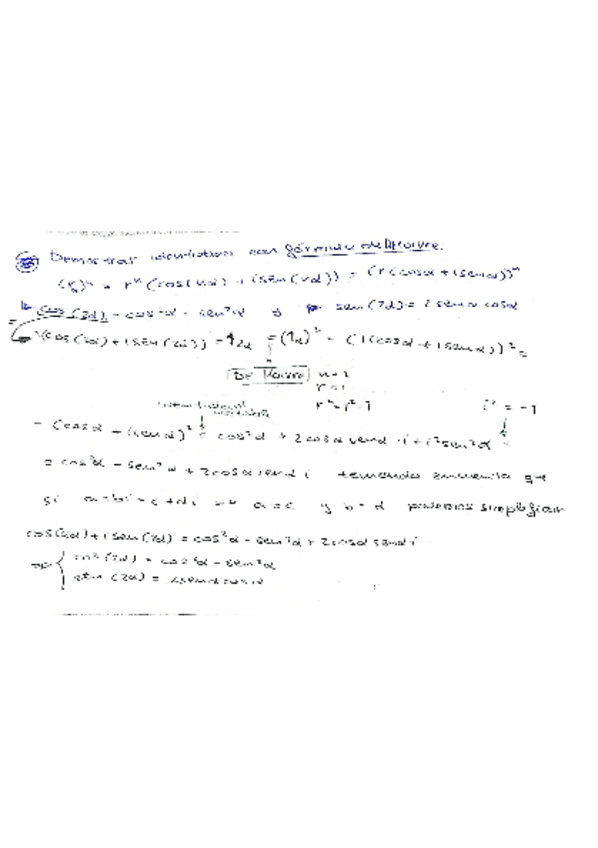 Demostrar identidades con fórmula de Moivre.
(r_α)^n = r^n (cos(nα) + i sen(nα)) = (r (cosα + i senα))^n
cos(2α) = cos²α - sen²α y sen(2α) = 2 senα cosα
(cos(2α) + i sen(2α)) = 1_2α = (1_α)² = (1(cosα + i senα))² =
De Moivre n=2
r=1
r^n = r² = 1 i² = -1
= (cosα + i senα)² = cos²α + 2cosα senα · i + i² sen²α =
= cos²α - sen²α + 2cosα senα i teniendo en cuenta que
si a+bi = c+di => a=c y b=d podemos simplificar
cos(2α) + i sen(2α) = cos²α - sen²α + 2cosα senα i
=> { cos(2α) = cos²α - sen²α
sen(2α) = 2senα cosα